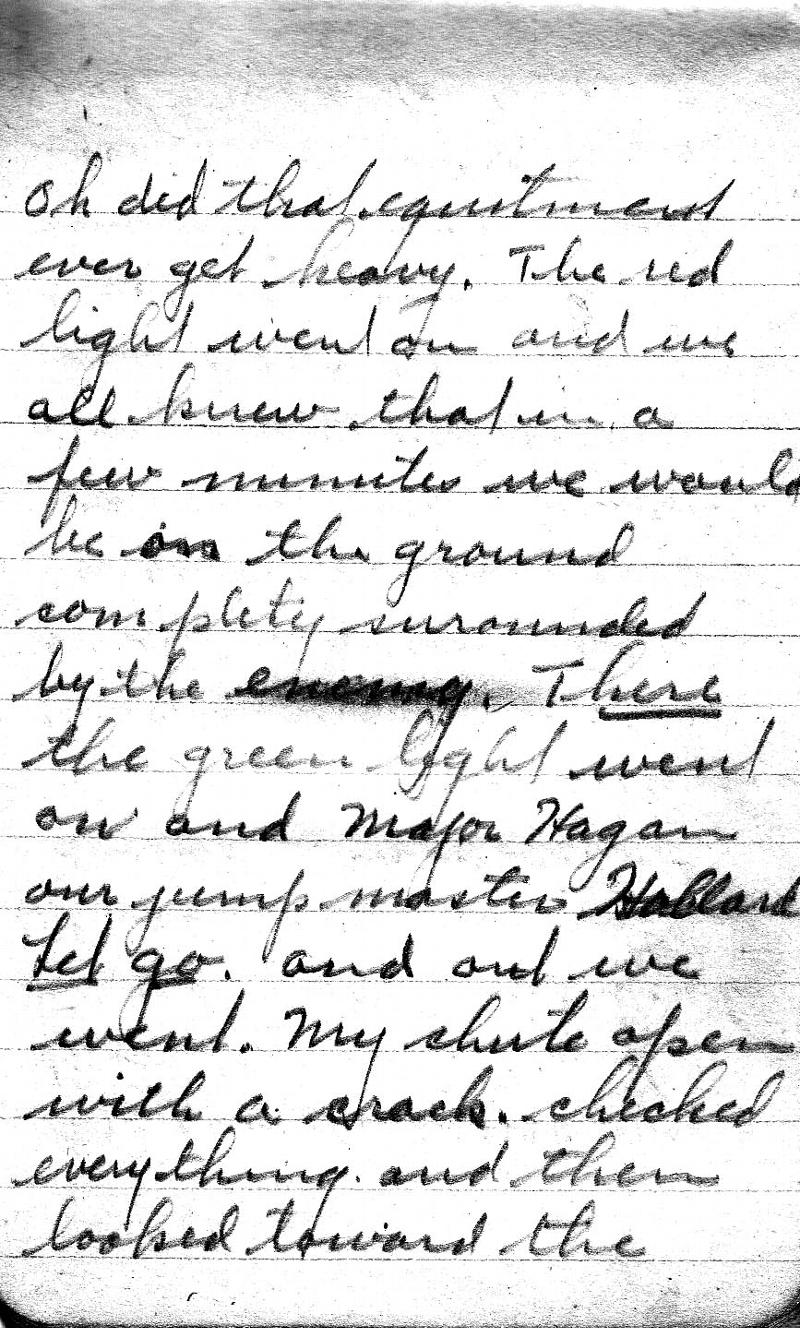 Oh did that equitment
ever get heavy. The red
light went on and we
all knew that in a
few minutes we would
be on the ground
complety surounded
by the enemy. There
the green light went
on and Major Hagan
our jump master Hollard
Let go. and out we
went. My chute open
with a crack. checked
everything. and then
looked toward the